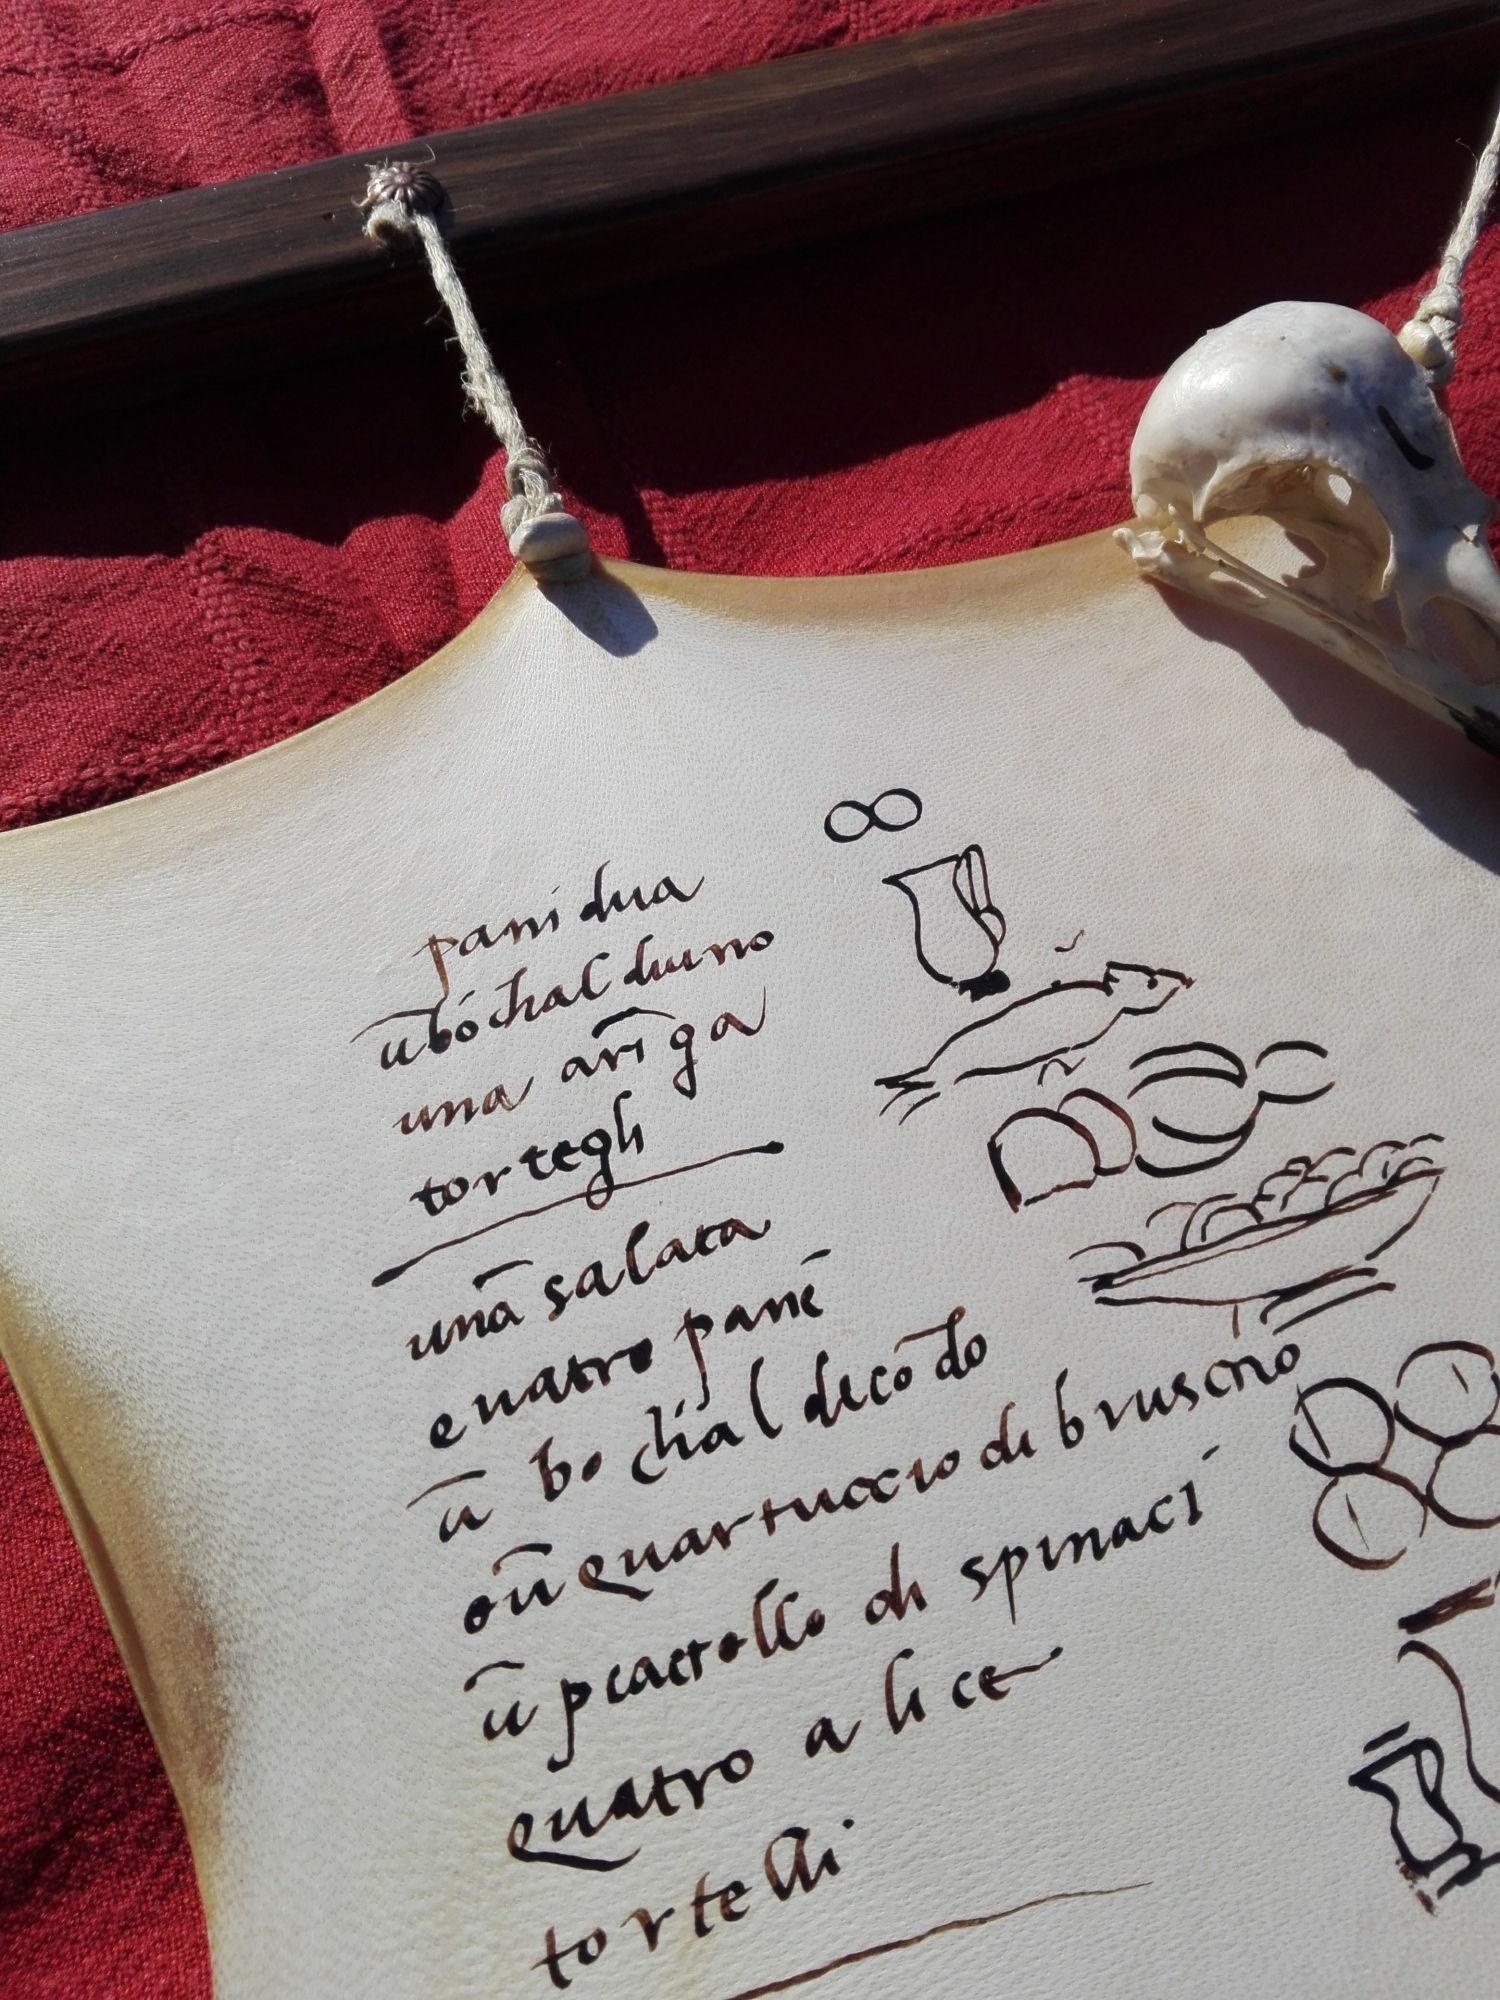 pani dua
ū bochal duino
una arīga
tortegli
una salata
quatro pani
ū bochal de cōdo
o ū quartuccio di bruscno
ū piactello di spinaci
quatro alice
tortelli